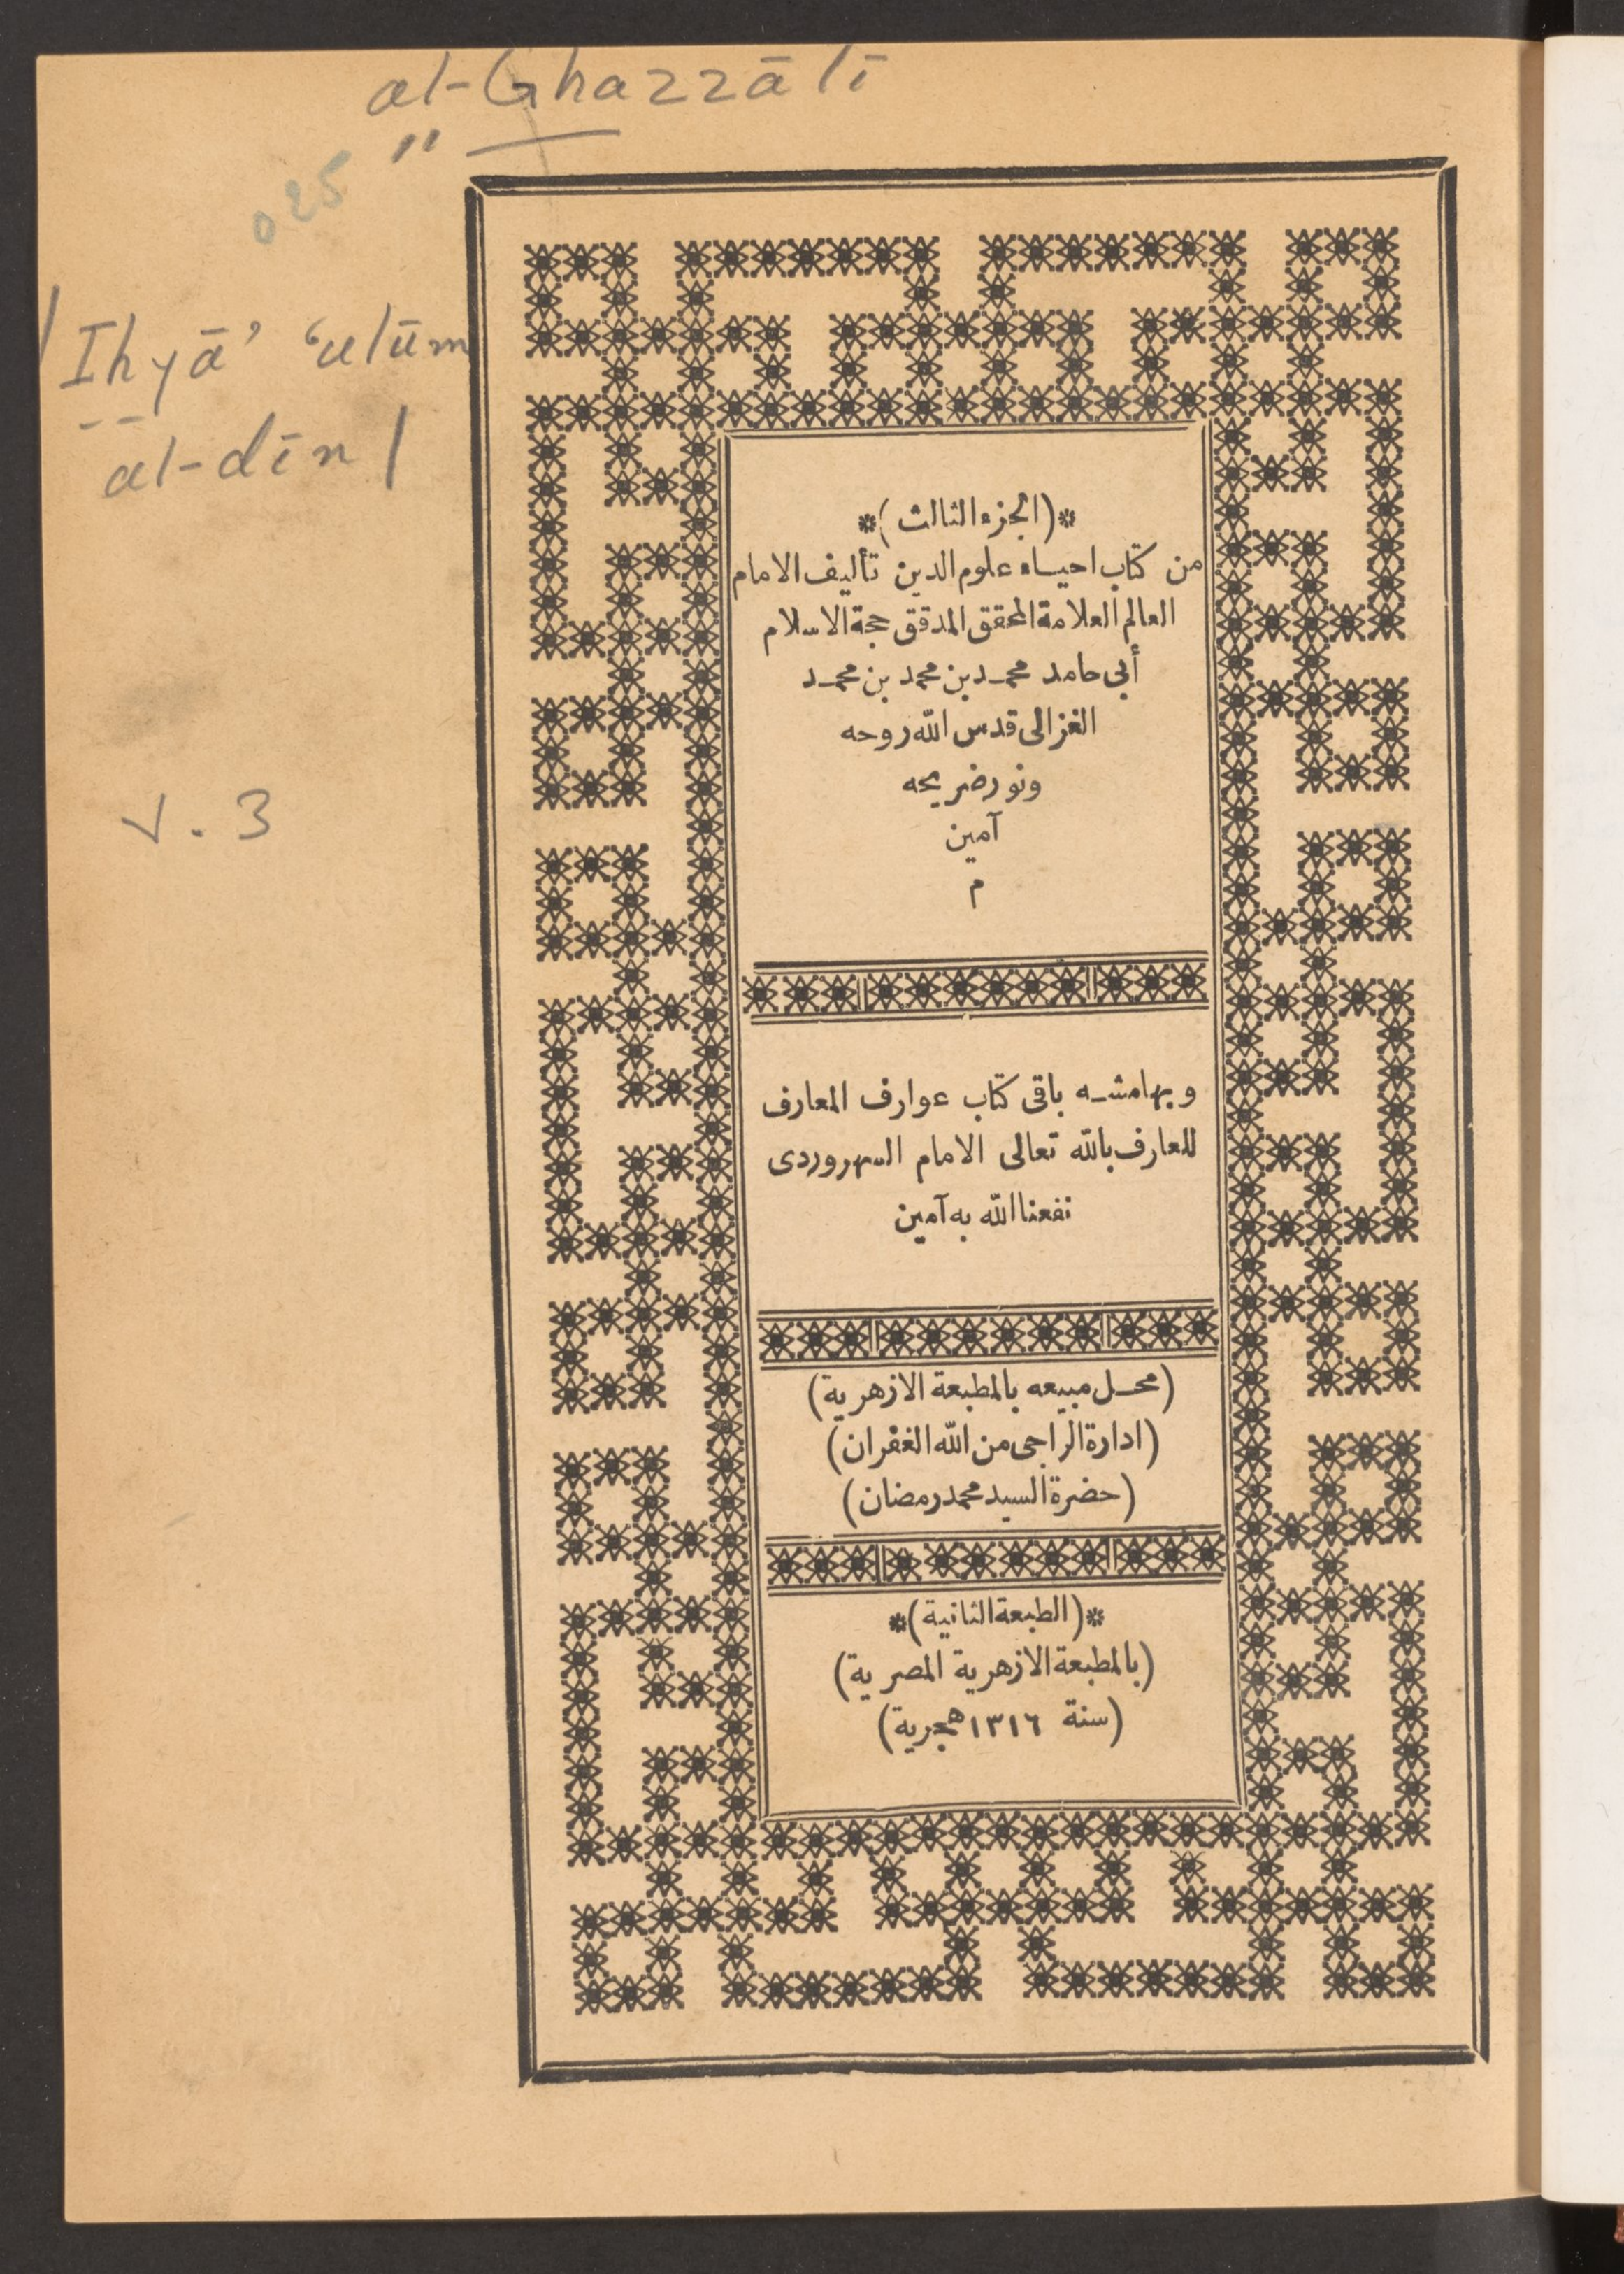 al-Ghazzālī
"
025
Ihyā' 'ulūm
al-dīn
v. 3
*(الجزء الثالث)*
من كتاب احياء علوم الدين تأليف الامام
العالم العلامة المحقق المدقق حجة الاسلام
أبى حامد محمد بن محمد بن محمد
الغزالى قدس الله روحه
ونور ضريحه
آمين
م
وبهامشه باقى كتاب عوارف المعارف
للعارف بالله تعالى الامام السهروردى
نفعنا الله به آمين
(محل مبيعه بالمطبعة الازهرية)
(ادارة الراجى من الله الغفران)
(حضرة السيد محمد رمضان)
*(الطبعة الثانية)*
(بالمطبعة الازهرية المصرية)
(سنة ١٣١٦ هجرية)